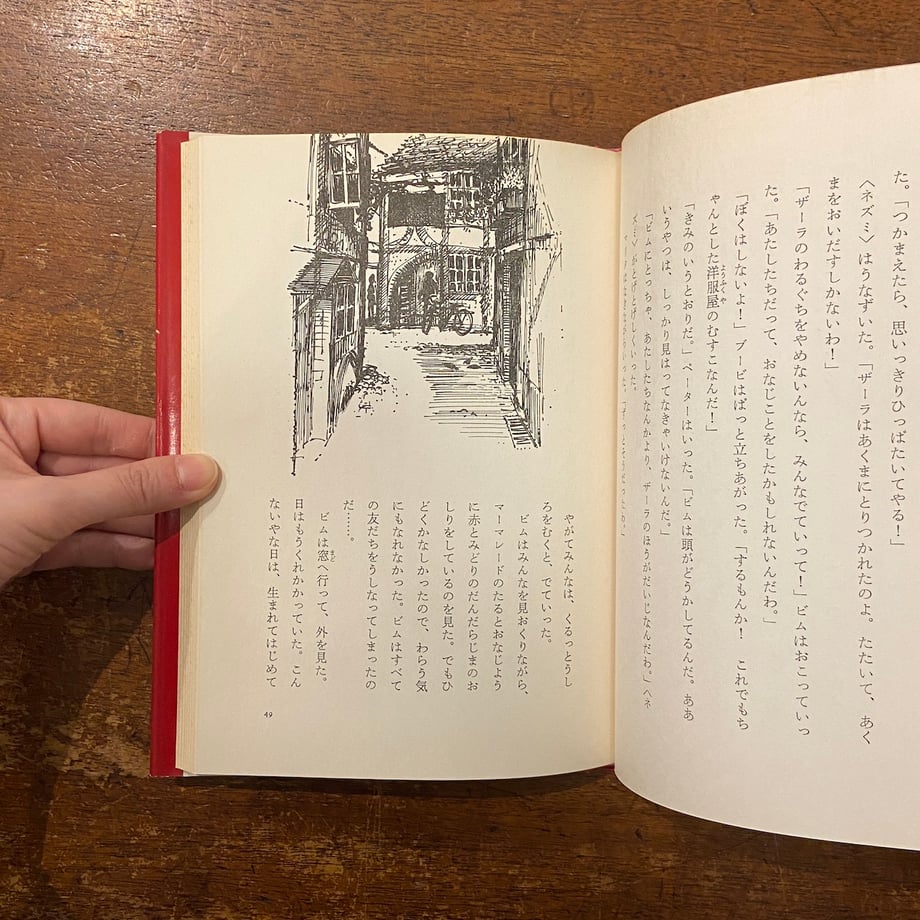 た。「つかまえたら、思いっきりひっぱたいてやる！」
〈ネズミ〉はうなずいた。「ザーラはあくまにとりつかれたのよ。たたいて、あく
まをおいだすしかないわ！」
「ザーラのわるぐちをやめないんなら、みんなでていって！」ビムはおこっていっ
た。「あたしたちだって、おなじことをしたかもしれないんだわ。」
「ぼくはしないよ！」ブービはぱっと立ちあがった。「するもんか！　これでもち
ゃんとした洋服屋のむすこなんだ！」
「きみのいうとおりだ。」ペーターはいった。「ビムは頭がどうかしてるんだ。ああ
いうやつは、しっかり見はってなきゃいけないんだ。」
「ビムにとっちゃ、あたしたちなんかより、ザーラのほうがだいじなんだわ。」〈ネ
ズミ〉がとげとげしくいった。
やがてみんなは、くるっとうし
ろをむくと、でていった。
ビムはみんなを見おくりながら、
マーマレードのたるとおなじよう
に赤とみどりのだんだらじまのお
しりをしているのを見た。でもひ
どくかなしかったので、わらう気
にもなれなかった。ビムはすべて
の友だちをうしなってしまったの
だ……。
ビムは窓へ行って、外を見た。
日はもうくれかかっていた。こん
ないやな日は、生まれてはじめて
49